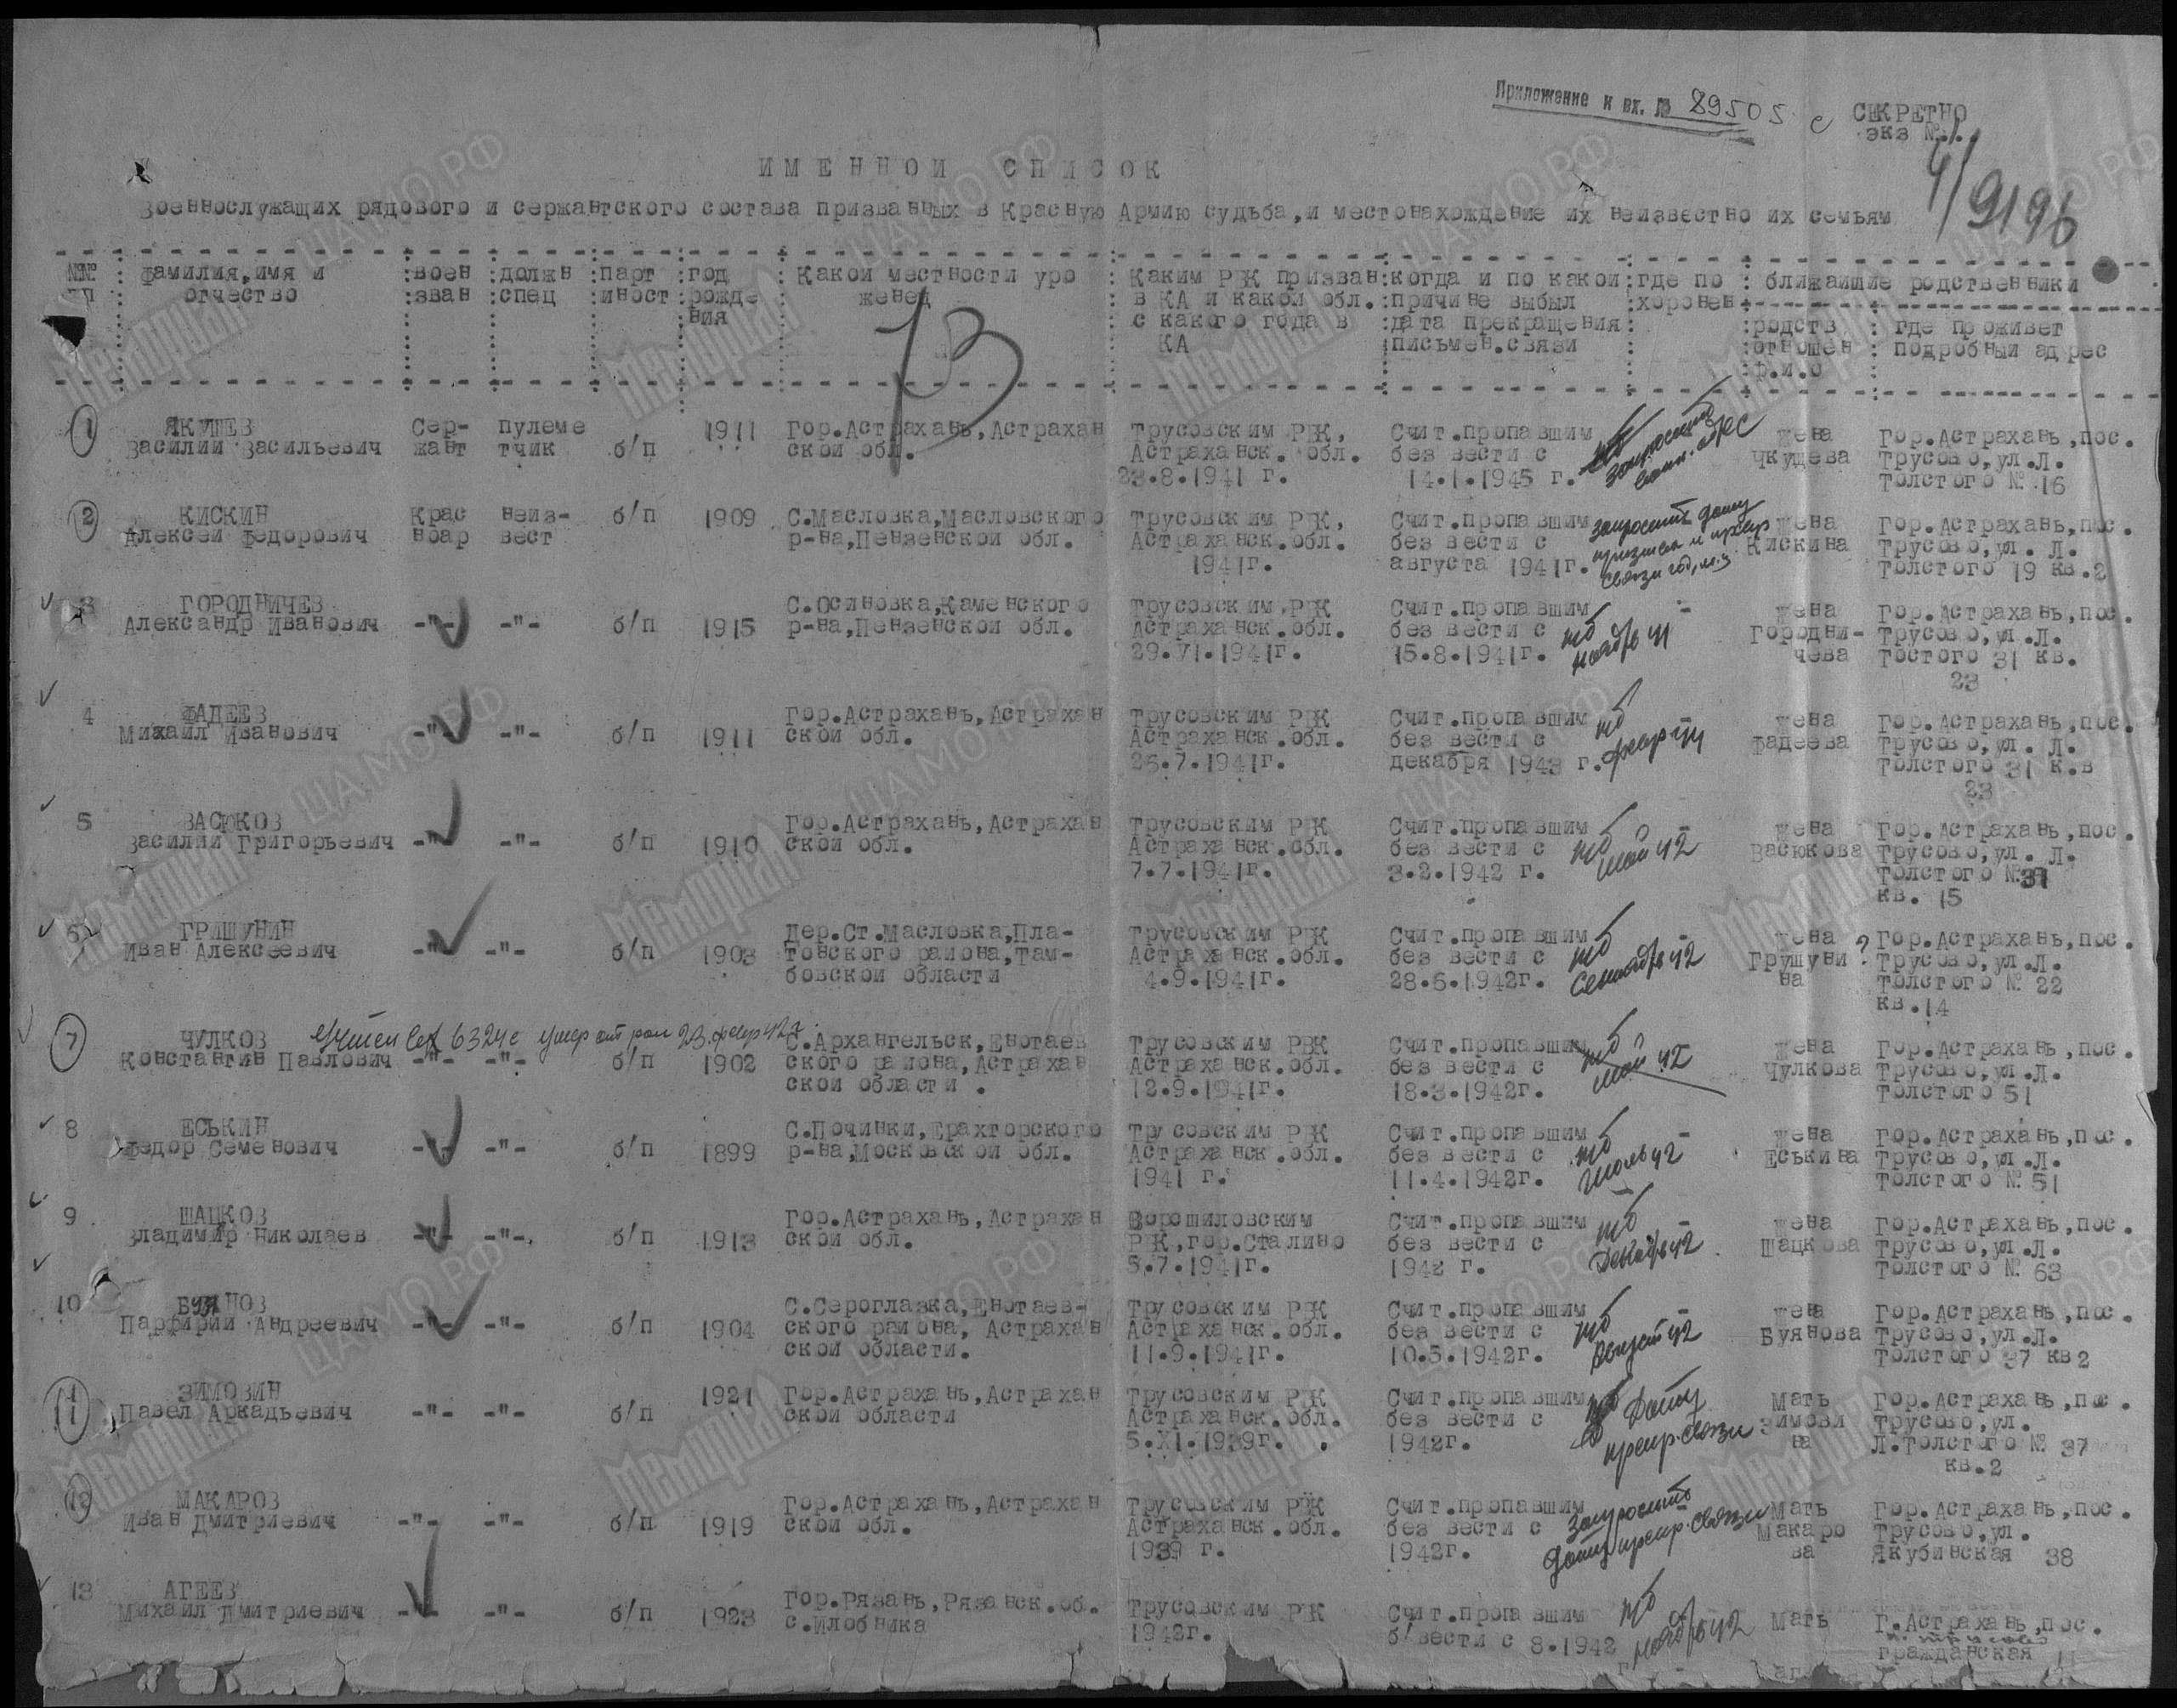 Приложение к вх. № 89505 с
СЕКРЕТНО
экз №.1.
4/9196
ИМЕННОЙ СПИСОК
Военнослужащих рядового и сержантского состава призванных в Красную Армию судьба,и местонахождение их неизвестно их семьям
№№ фамилия,имя и воен должн парт год Какой местности уро Каким РВК призван когда и по какой где по ближайшие родственники
пп отчество зван спец иност рожде женец в КА и какой обл. причине выбыл хоронен
ния с какого года в дата прекращения родств где проживет
КА письмен.связи отношен подробный адрес
ф.и.о
13
1 ЯКУШЕВ Сер- пулеме 1911 Гор.Астрахань,Астрахан Трусовским РВК, Счит.пропавшим жена Гор.Астрахань,пос.
Василий Васильевич жант тчик б/п ской обл. Астраханск. обл. без вести с Чкудева Трусово,ул.Л.
23.8.1941 г. 14.1.1945 г. Толстого № 16
запросить
2 КИСКИН Крас неиз- б/п 1909 С.Масловка,Масловского Трусовским РВК, Счит.пропавшим жена Гор.Астрахань,пос.
Алексей Федорович ноар вест р-на,Пензенской обл. Астраханск.обл. без вести с Кискина Трусово,ул. Л.
1941г. августа 1941г. Толстого 19 кв.2
запросить дату
призыва и прекр
связи год, м-ц
3 ГОРОДНИЧЕВ С.Осиновка,Каменского Трусовским.РВК Счит.пропавшим - жена Гор.Астрахань,пос.
Александр Иванович -"- -"- б/п 1915 р-на,Пензенской обл. Астраханск.обл. без вести с Городни- Трусово,ул.Л.
29.VI.1941г. 15.8.1941г. чева Тостого 31 кв.
23
п/б
ноябрь 41
4 ФАДЕЕВ Гор.Астрахань,Астрахан Трусовским РВК Счит.пропавшим жена Гор.Астрахань,пос.
Михаил Иванович -"- -"- б/п 1911 ской обл. Астраханск.обл. без вести с Фадеева Трусово,ул. Л.
26.7.1941г. декабря 1943 г. Толстого 31 к.в
23
п/б
февр 44
5 ВАСЮКОВ Гор.Астрахань,Астрахан Трусовским РВК Счит.пропавшим - жена Гор.Астрахань,пос.
Василий Григорьевич -"- -"- б/п 1910 ской обл. Астраханск.обл. без вести с Васюкова Трусово,ул. Л.
7.7.1941г. 3.2.1942 г. Толстого №31
кв. 15
п/б
май 42
6 ГРИШУНИН Дер.Ст.Масловка,Пла- Трусовским РВК Счит.пропавшим - жена ? Гор.Астрахань,пос.
Иван Алексеевич -"- -"- б/п 1903 товского района,Там- Астраханск.обл. без вести с Грушуни Трусово,ул.Л.
бовской области 4.9.1941г. 28.6.1942г. на Толстого № 22
кв.14
п/б
Сентябрь 42
7 ЧУЛКОВ 6324с умер от ран 23.февр 42г. С.Архангельск,Енотаев Трусовским РВК Счит.пропавшим жена Гор.Астрахань,пос.
Константин Павлович -"- -"- б/п 1902 ского района,Астрахан Астраханск.обл. без вести с Чулкова Трусово,ул.Л.
ской области . 12.9.1941г. 18.3.1942г. Толстого 51
п/б
май 42
8 ЕСЬКИН С.Починки,Ерахторского Трусовским РВК Счит.пропавшим - жена Гор.Астрахань,пос.
Федор Семенович -"- -"- б/п 1899 р-на,Московской обл. Астраханск.обл. без вести с Еськина Трусово,ул.Л.
1941 г. 11.4.1942г. Толстого № 51
п/б
Июль 42
9 ШАЦКОВ Гор.Астрахань,Астрахан Ворошиловским Счит.пропавшим - жена Гор.Астрахань,пос.
Владимир Николаев -"- -"-. б/п 1913 ской обл. РВК,гор.Сталино без вести с Шацкова Трусово,ул.Л.
5.7.1941г. 1942 г. Толстого № 63
п/б
Декабрь 42
10 БУЯНОВ С.Сероглазка,Енотаев- Трусовским РВК Счит.пропавшим - жена Гор.Астрахань,пос.
Парфирий Андреевич -"- -"- б/п 1904 ского района, Астрахан Астраханск.обл. без вести с Буянова Трусово,ул.Л.
ской области. 11.9.1941г. 10.5.1942г. Толстого 37 кв2
п/б
Август 42
11 ЗИМОВИН 1921 Гор.Астрахань,Астрахан Трусовским РВК Счит.пропавшим Мать Гор.Астрахань,пос.
Павел Аркадьевич -"- -"- б/п ской области Астраханск.обл. без вести с Зимови Трусово,ул.
5.XI.1939г. . 1942г. на Л.Толстого № 37
кв.2
Дату
прекр.связи
12 МАКАРОВ Гор.Астрахань,Астрахан Трусовским РВК Счит.пропавшим Мать Гор.Астрахань,пос.
Иван Дмитриевич -"- -"- б/п 1919 ской обл. Астраханск.обл. без вести с Макаро Трусово,ул.
1939 г. 1942г. ва Якубинская 38
Запросить
дату прекр.связи
13 АГЕЕВ Гор.Рязань,Рязанск.об. Трусовским РВК Счит.пропавшим Мать Г.Астрахань,пос.
Михаил Дмитриевич -"- -"- б/п 1923 с.Илобника 1942г. б/вести с 8.1942 гражданская 11
г.
п/б
ноябрь 42